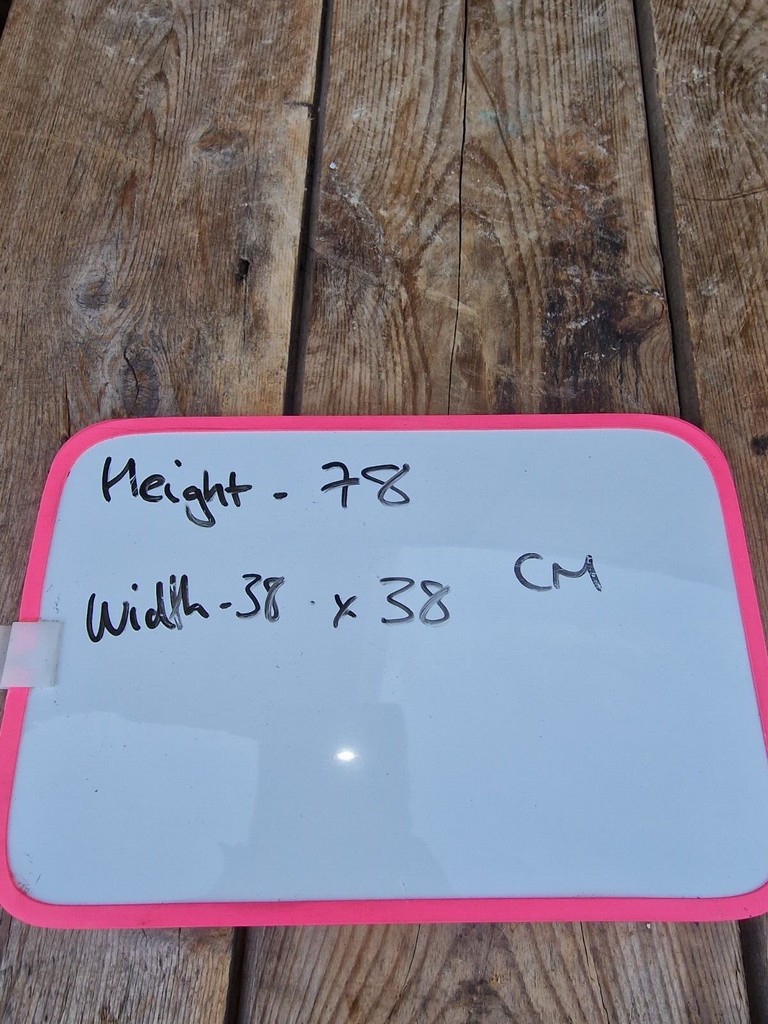 Height - 78
CM
Width - 38 x 38